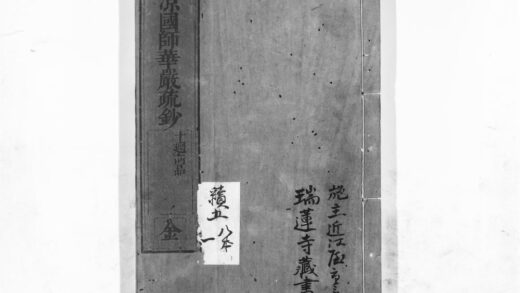 涼國師華嚴疏鈔
十𢌞向品
金
續五
八本
一
施主近江屋
瑞蓮寺藏書